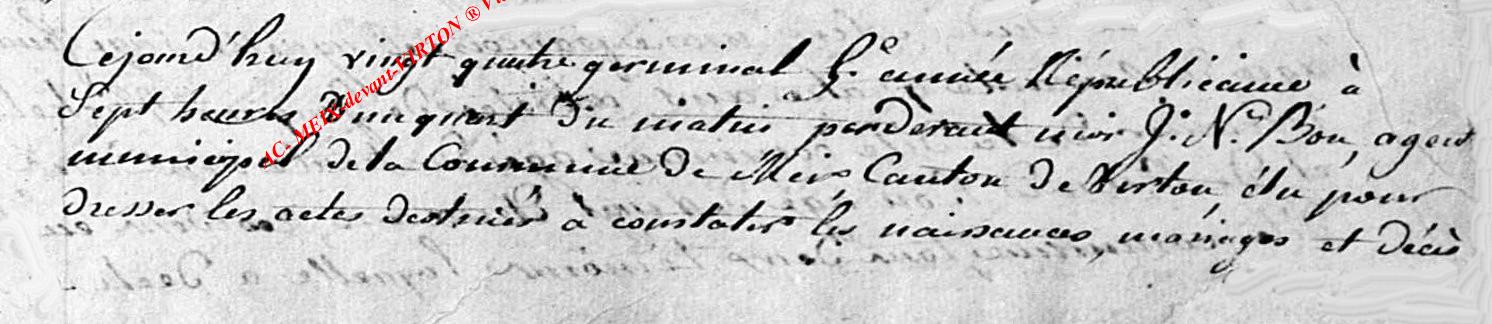 Cejourd'huy vingt quatre germinal 5e année Républicaine à
Sept heures d'un quart du matin pardevant moi J. N. Bon, agent
municipal de la Commune de Meix Canton de Virton, élu pour
dresser les actes destinés à constater les naissances, mariages et décès
AC. MEIX-devant-VIRTON ®